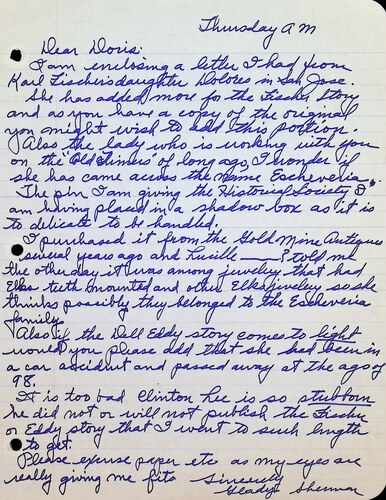 Thursday A M
Dear Doris:
I am enclosing a letter I had from
Karl Fischer's daughter Dolores in San Jose.
She has added more for the Fischer Story
and as you have a copy of the original
you might wish to add this portion.
Also the lady who is working with you
on the "Old Timers" of long ago, I wonder if
she has came across the name Escheveria".
The pin I am giving the Historical Society I
am having placed in a shadow box as it is
to delicate to be handled.
I purchased it from the Gold Mine Antiques
several years ago and Lucille ——? told me
the other day it was among jewelry that had
Elks teeth mounted and other Elks jewelry so she
thinks possibly they belonged to the Escheveria
family.
Also if the Dell Eddy story comes to light
would you please add that she had been in
a car accident and passed away at the age of
98.
It is too bad Clinton Lee is so stubborn
he did not or will not publish the Fischer
or Eddy story that I went to such length
to get.
Please excuse paper etc as my eyes are
really giving me fits Sincerely
Gladys Sherman